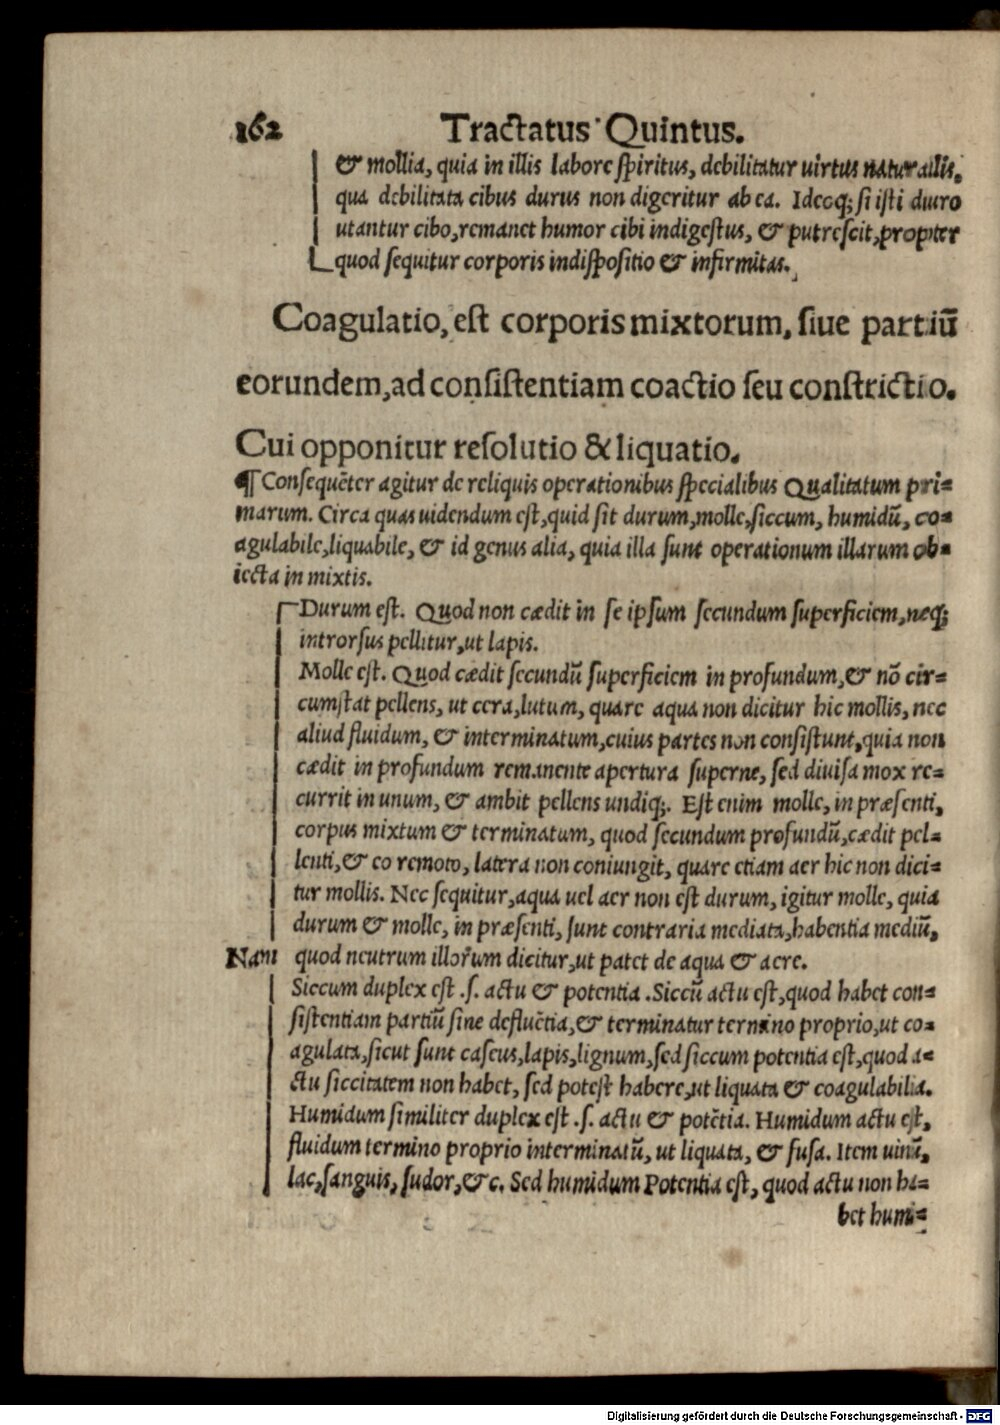 162 Tractatus Quintus.
& mollia, quia in illis labore ſpiritus, debilitatur uirtus naturalis,
qua debilitata cibus durus non digeritur ab ea. Ideoq; ſi iſti duro
utantur cibo, remanet humor cibi indigeſtus, & putreſcit, propter
quod ſequitur corporis indiſpoſitio & infirmitas.
Coagulatio, eſt corporis mixtorum, ſiue partiū
eorundem, ad conſiſtentiam coactio ſeu conſtrictio.
Cui opponitur reſolutio & liquatio.
¶ Conſequēter agitur de reliquis operationibus ſpecialibus Qualitatum pri=
marum. Circa quas uidendum eſt, quid ſit durum, molle, ſiccum, humidū, co=
agulabile, liquabile, & id genus alia, quia illa ſunt operationum illarum ob=
iecta in mixtis.
Durum eſt. Quod non cædit in ſe ipſum ſecundum ſuperficiem, neq;
introrſus pellitur, ut lapis.
Molle eſt. Quod cædit ſecundū ſuperficiem in profundum, & nō cir=
cumſtat pellens, ut cera, lutum, quare aqua non dicitur hic mollis, nec
aliud fluidum, & interminatum, cuius partes non conſiſtunt, quia non
cædit in profundum remanente apertura ſuperne, ſed diuiſa mox re=
currit in unum, & ambit pellens undiq;. Eſt enim molle, in præſenti,
corpus mixtum & terminatum, quod ſecundum profundū, cædit pel=
lenti, & eo remoto, latera non coniungit, quare etiam aer hic non dici=
tur mollis. Nec ſequitur, aqua uel aer non eſt durum, igitur molle, quia
durum & molle, in præſenti, ſunt contraria mediata, habentia mediū,
Nam quod neutrum illorum dicitur, ut patet de aqua & aere.
Siccum duplex eſt .ſ. actu & potentia. Siccū actu eſt, quod habet con=
ſiſtentiam partiū ſine defluētia, & terminatur termino proprio, ut co=
agulata, ſicut ſunt caſeus, lapis, lignum, ſed ſiccum potentia eſt, quod a=
ctu ſiccitatem non habet, ſed poteſt habere, ut liquata & coagulabilia.
Humidum ſimiliter duplex eſt .ſ. actu & potētia. Humidum actu eſt,
fluidum termino proprio interminatū, ut liquata, & fuſa. Item uinū,
lac, ſanguis, ſudor, &c. Sed humidum Potentia eſt, quod actu non ha=
bet humi=
Digitalisierung gefördert durch die Deutsche Forschungsgemeinschaft - DFG